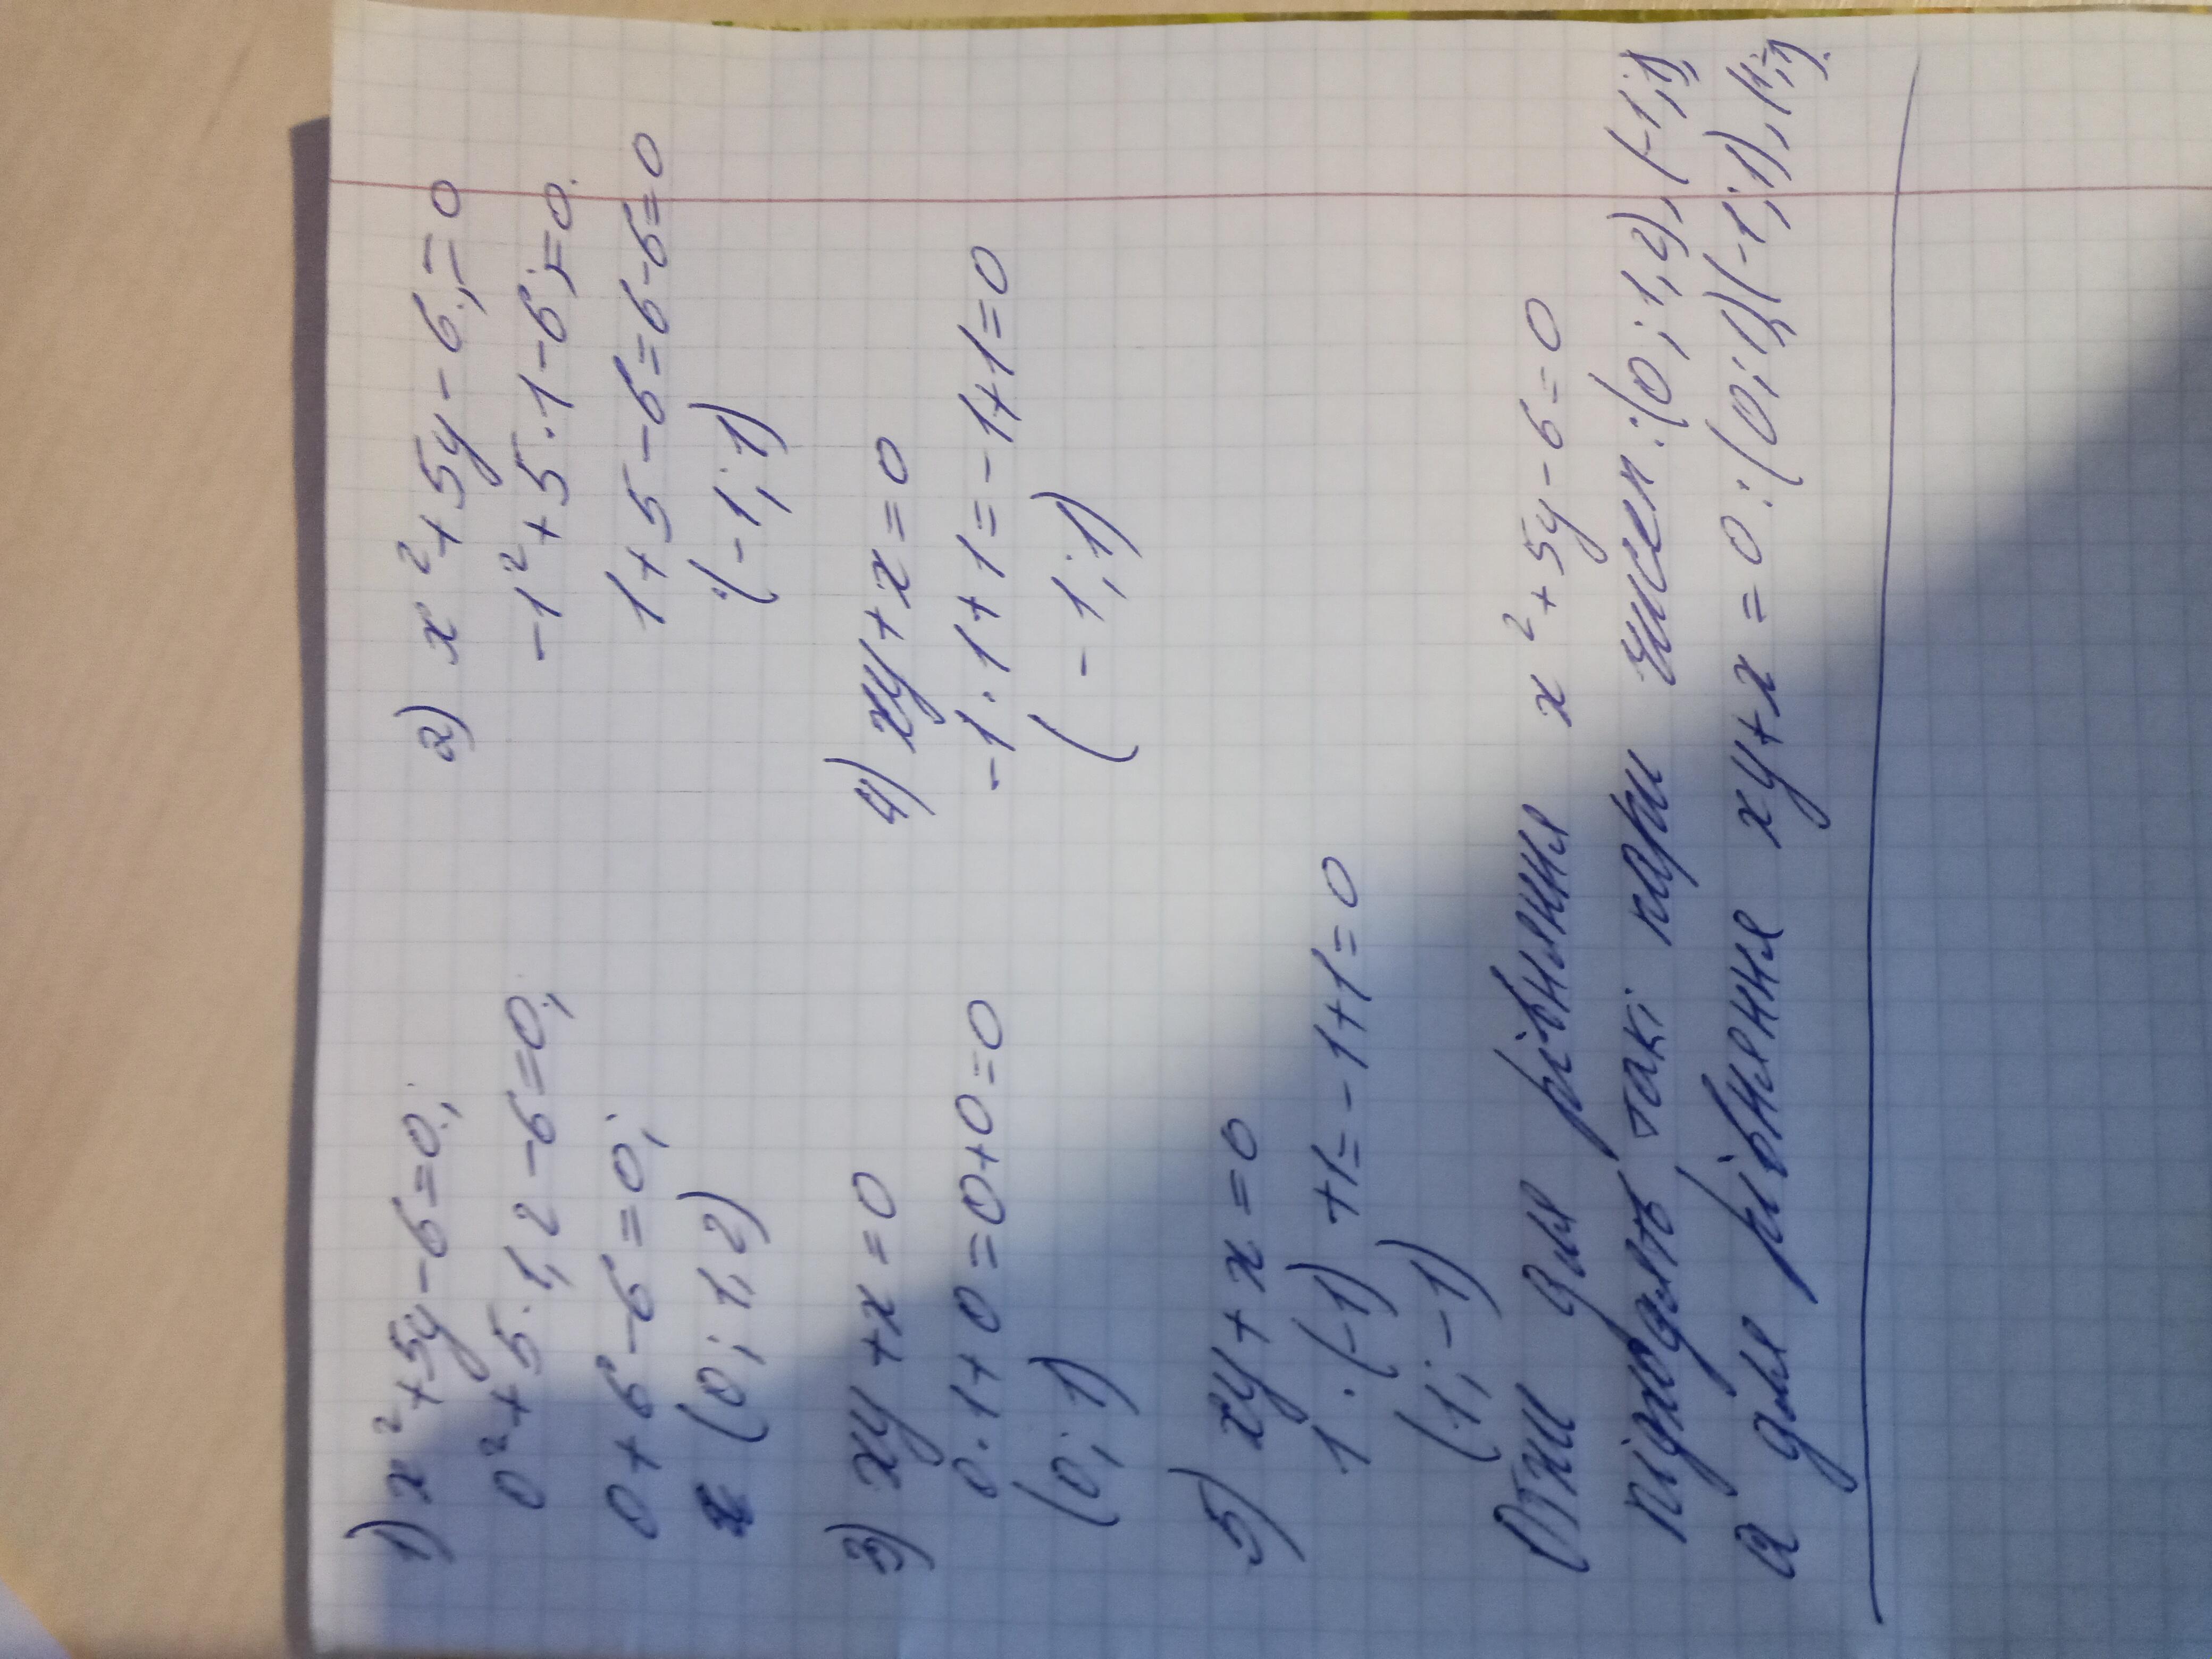 1) x²+5y-6=0;
0²+5·1,2-6=0;
0+6-6=0;
(0; 1,2)
2) x²+5y-6;=0
-1²+5·1-6;=0.
1+5-6=6-6=0
(-1; 1)
3) xy+x=0
0·1+0=0+0=0
(0; 1)
4) xy+x=0
-1·1+1=-1+1=0
(-1; 1)
5) xy+x=0
1·(-1)+1=-1+1=0
(1; -1)
Отже для рівняння x²+5y-6=0
підходять такі пари чисел:(0; 1,2), (-1; 1),
а для рівняння xy+x=0:(0; 1),(-1; 1),(1;-1).